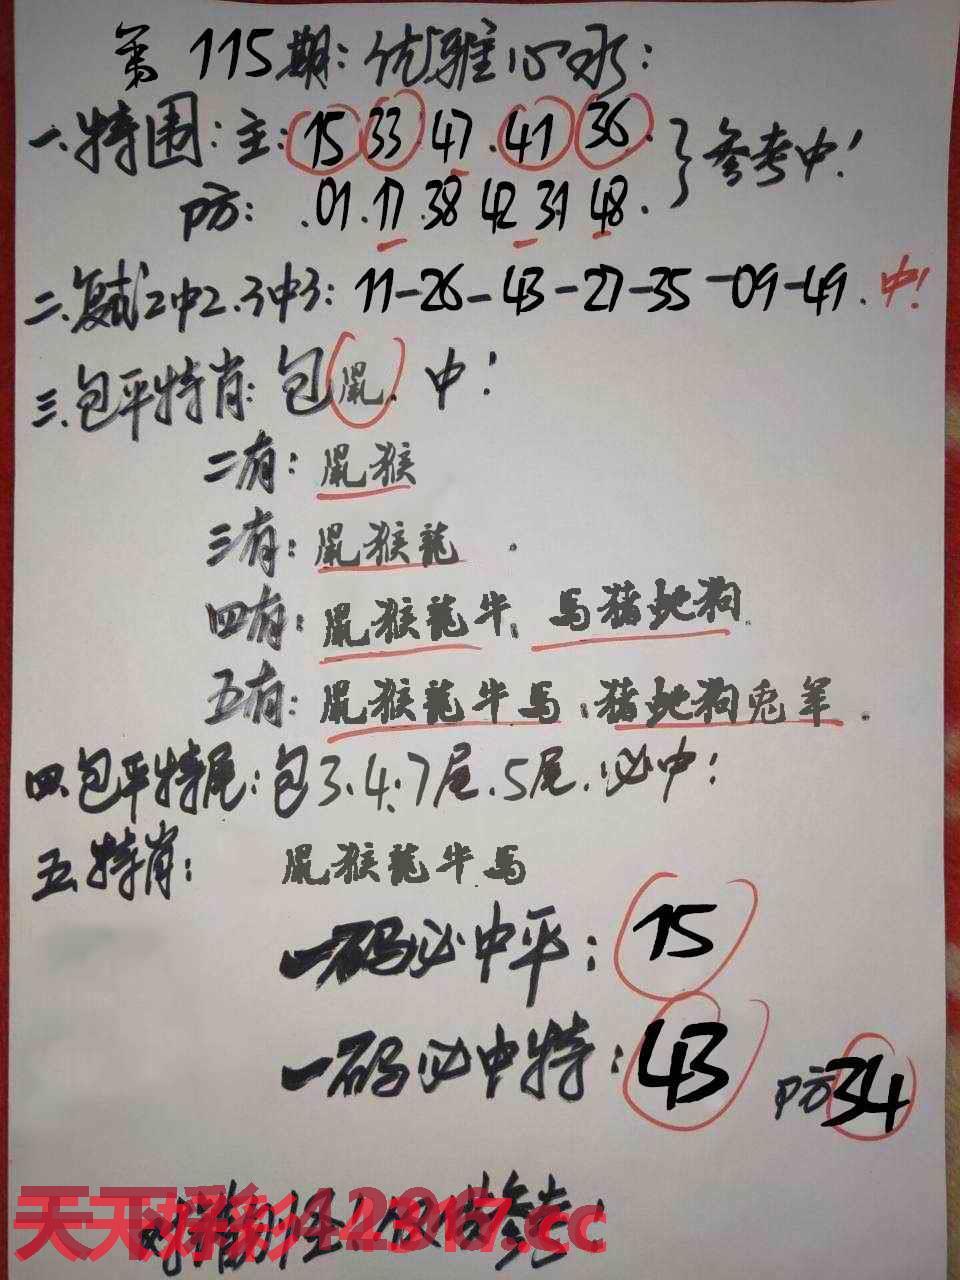 第115期:优雅心水:
一.特围:主:15 33 47.41 36.
防:.01.17.38 42 31 48.
}参考中!
二.复式2中2.3中3:11-26-43-27-35-09-49.中!
三.包平特肖:包鼠.中!
二有:鼠猴
三有:鼠猴龍.
四有:鼠猴龍牛.馬猪蛇狗.
五有:鼠猴龍牛馬.猪蛇狗兎羊.
四.包平特尾:包3.4.7尾.5尾.必中!
五.特肖:鼠猴龍牛馬
一码必中平:15
一码必中特:43 防34
天下彩 2317.cc